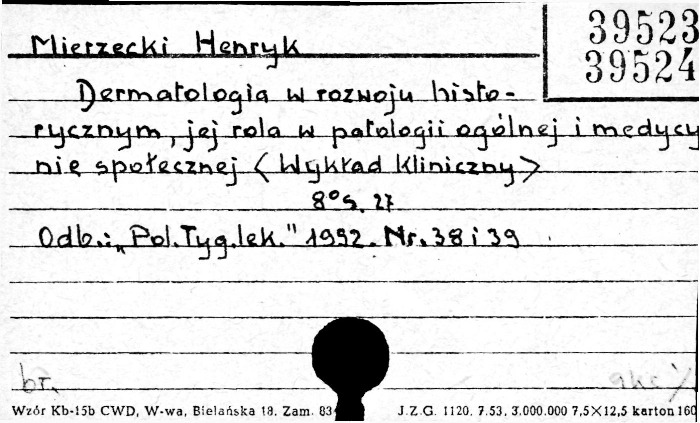 39523
39524
Mierzecki Henryk
Dermatologia w rozwoju histo-
rycznym, jej rola w patologii ogólnej i medycy
nie społecznej <Wykład kliniczny>
8° s. 27
Odb.: „Pol. Tyg. lek." 1952. Nr. 38 i 39
br.
Wzór Kb-15b CWD, W-wa, Bielańska 18. Zam. 83
J.Z.G. 1120. 7.53. 3.000.000 7,5×12,5 karton 160